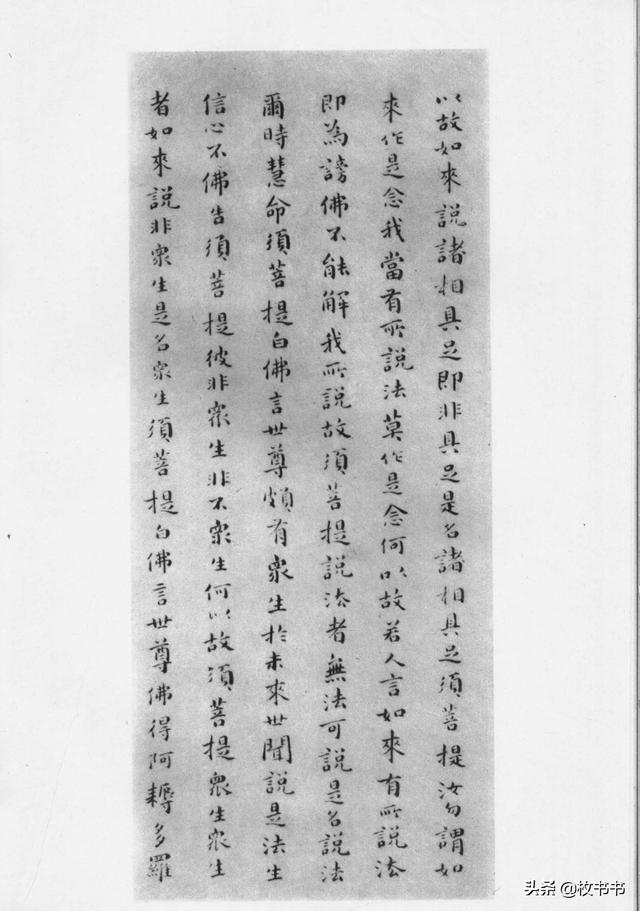 以故如來說諸相具足即非具足是名諸相具足須菩提汝勿謂如
來作是念我當有所說法莫作是念何以故若人言如來有所說法
即為謗佛不能解我所說故須菩提說法者無法可說是名說法
爾時慧命須菩提白佛言世尊頗有衆生於未來世聞說是法生
信心不佛告須菩提彼非衆生非不衆生何以故須菩提衆生衆生
者如來說非衆生是名衆生須菩提白佛言世尊佛得阿耨多羅
头条 @枚书书